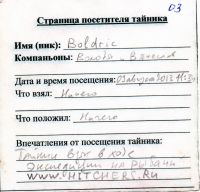 03
Страница посетителя тайника
Имя (ник): Boldric
Компаньоны: Вячеслав
Дата и время посещения: 03 августа 2013
Что взял: Ничего
Что положил: Ничего
Впечатления от посещения тайника:
взят в ходе
экспедиции на рыбачий
www.HITCHERS.RU